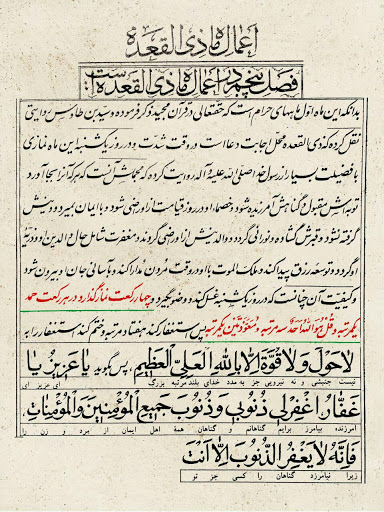 اعمال ماه ذی القعده
فصل پنجم در اعمال ماه ذی القعده است
بدانکه این ماه اول ماههای حرام است که حقتعالی در قرآن مجید ذکر فرموده و سید بن طاوس روایتی
نقل کرده که ذی القعده محل اجابت دعا است در وقت شدت و در روز یکشنبه این ماه نمازی
با فضیلت بسیار از رسول خدا صلی الله علیه و آله روایت کرده که مجملش آنست که هر که آنرا بجا آورد
توبه‌اش مقبول و گناهش آمرزیده شود و خصماء او در روز قیامت از او راضی شود و با ایمان بمیرد و دینش
گرفته نشود و قبرش گشاده و نورانی گردد و والدینش از او راضی گردند و مغفرت شامل حال والدین او و ذریه
او گردد و توسعه رزق پیدا کند و ملک الموت با او در وقت مردن مدارا کند و باسانی جان او بیرون شود
و کیفیت آن چنانست که در روز یکشنبه غسل کند و وضو بگیرد و چهار رکعت نماز گذارد در هر رکعت حمد
یکمرتبه و قل هو الله احد سه مرتبه و معوذتین یکمرتبه پس استغفار کند هفتاد مرتبه و ختم کند استغفار را به
لا حَوْلَ وَلا قُوَّةَ اِلاّ بِاللهِ الْعَلِيِّ الْعَظيمِ پس بگوید يا عَزيزُ يا
نیست جنبشی و نه نیرویی جز به مدد خدای بلند مرتبه بزرگ ای عزیز ای
غَفّارُ اغْفِرْ لي ذُنُوبي وَذُنُوبَ جَميعِ الْمُؤْمِنينَ وَالْمُؤْمِناتِ
آمرزنده بیامرز برایم گناهانم و گناهان همه اهل ایمان از مرد و زن را
فَاِنَّهُ لا يَغْفِرُ الذُّنُوبَ اِلاّ اَنْتَ
زیرا نیامرزد گناهان را کسی جز تو